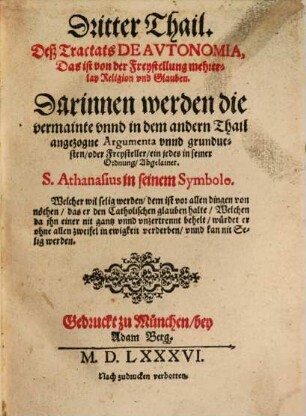 Dritter Thail.
Deß Tractats DE AVTONOMIA,
Das ist von der Freystellung mehrer-
lay Religion vnd Glauben.
Darinnen werden die
vermainte vnnd in dem andern Thail
angezogne Argumenta vnnd grundue-
sten/oder Freysteller/ein jedes in seiner
Ordnung/Abgelainet.
S. Athanasius in seinem Symbolo.
Welcher wil selig werden/dem ist vor allen dingen von
nöthen/das er den Catholischen glauben halte/Welchen
da jhn einer nit gantz vnnd vnzertrennt behelt/würdet er
ohne allen zweifel in ewigkeit verderben/vnnd kan nit Se-
lig werden.
Gedruckt zu München/bey
Adam Berg.
M. D. LXXXVI.
Nach zudrucken verbotten.